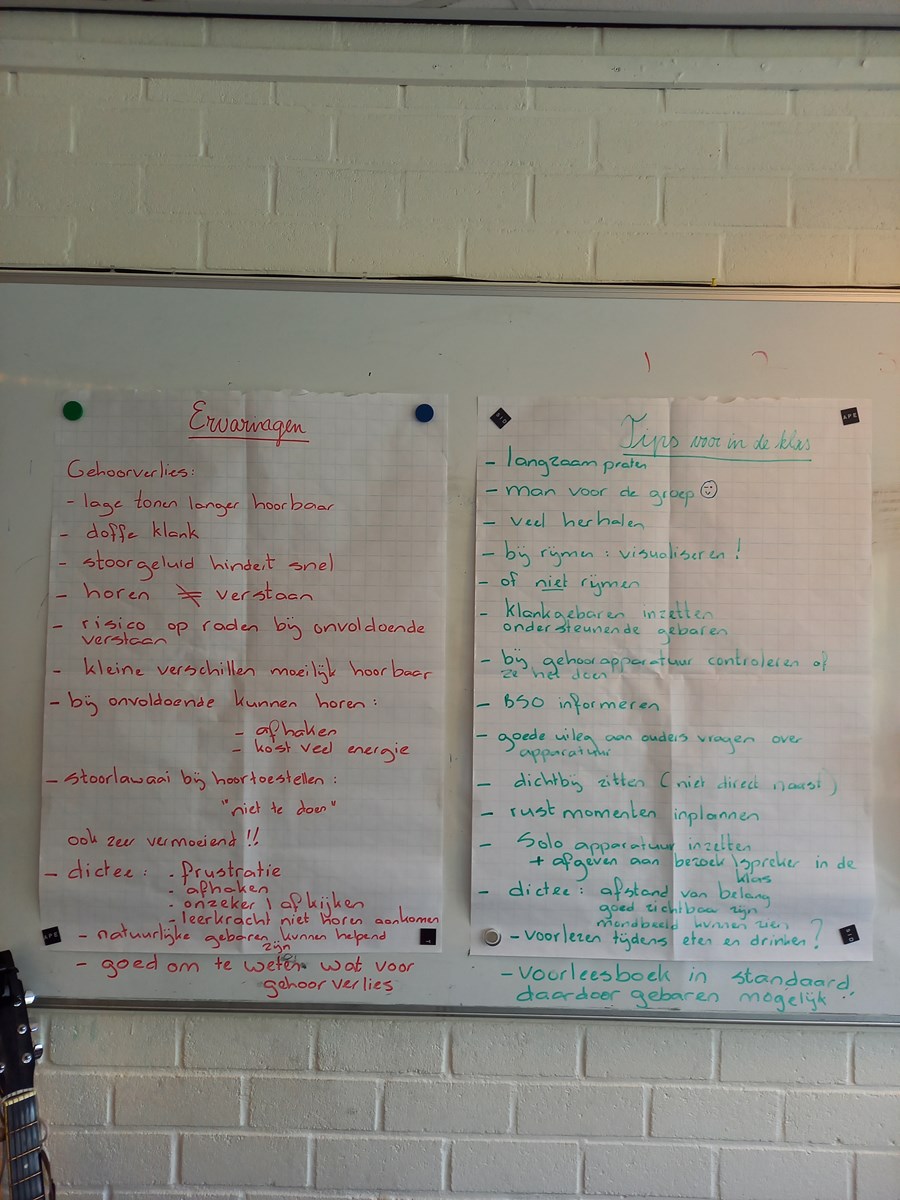 Ervaringen
Gehoorverlies:
- lage tonen langer hoorbaar
- doffe klank
- stoorgeluid hindert snel
- horen ≠ verstaan
- risico op raden bij onvoldoende
verstaan
- kleine verschillen moeilijk hoorbaar
- bij onvoldoende kunnen horen:
- afhaken
- kost veel energie
- stoorlawaai bij hoortoestellen:
"niet te doen"
ook zeer vermoeiend !!
- dictee: . frustratie
. afhaken
. onzeker / afkijken
- leerkracht niet horen aankomen
- natuurlijke gebaren kunnen helpend
zijn
- goed om te weten wat voor
gehoorverlies
Tips voor in de klas
- langzaam praten
- man voor de groep ☺
- veel herhalen
- bij rijmen: visualiseren!
- of niet rijmen
- klankgebaren inzetten
ondersteunende gebaren
- bij gehoorapparatuur controleren of
ze het doen
- BSO informeren
- goede uileg aan ouders vragen over
apparatuur
- dichtbij zitten (niet direct naast)
- rust momenten inplannen
- Solo apparatuur inzetten
+ afgeven aan bezoek/spreker in de
klas
- dictee: afstand van belang
goed zichtbaar zijn
mondbeeld kunnen zien
- voorlezen tijdens eten en drinken?
- voorleesboek in standaard,
daardoor gebaren mogelijk!!
1 2
APE